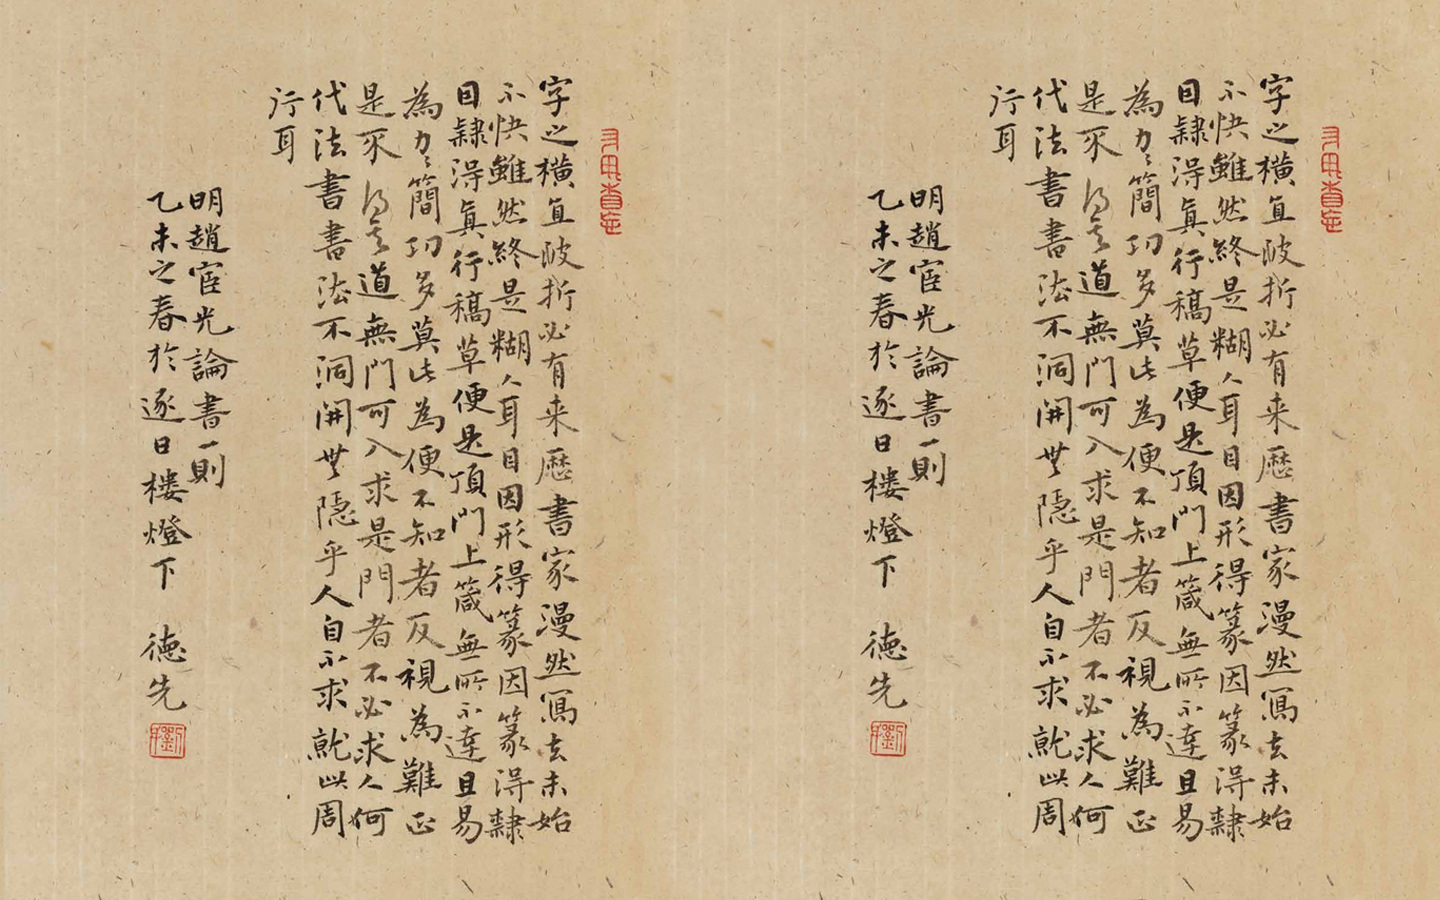 字之橫直陂折必有来歷書家漫然寫去未始
不快雖然終是糊人耳目因形得篆因篆得隸
目隸得真行稿草便是頂門上箴無所不達且易
為力簡功多莫此為便不知者反視為難正
是不得其道無門可入求是門者不必求人何
代法書書法不洞開無隱乎人自不求就此周
行耳
明趙宧光論書一則
乙未之春於逐日樓燈下 德先
字之橫直陂折必有来歷書家漫然寫去未始
不快雖然終是糊人耳目因形得篆因篆得隸
目隸得真行稿草便是頂門上箴無所不達且易
為力簡功多莫此為便不知者反視為難正
是不得其道無門可入求是門者不必求人何
代法書書法不洞開無隱乎人自不求就此周
行耳
明趙宧光論書一則
乙未之春於逐日樓燈下 德先